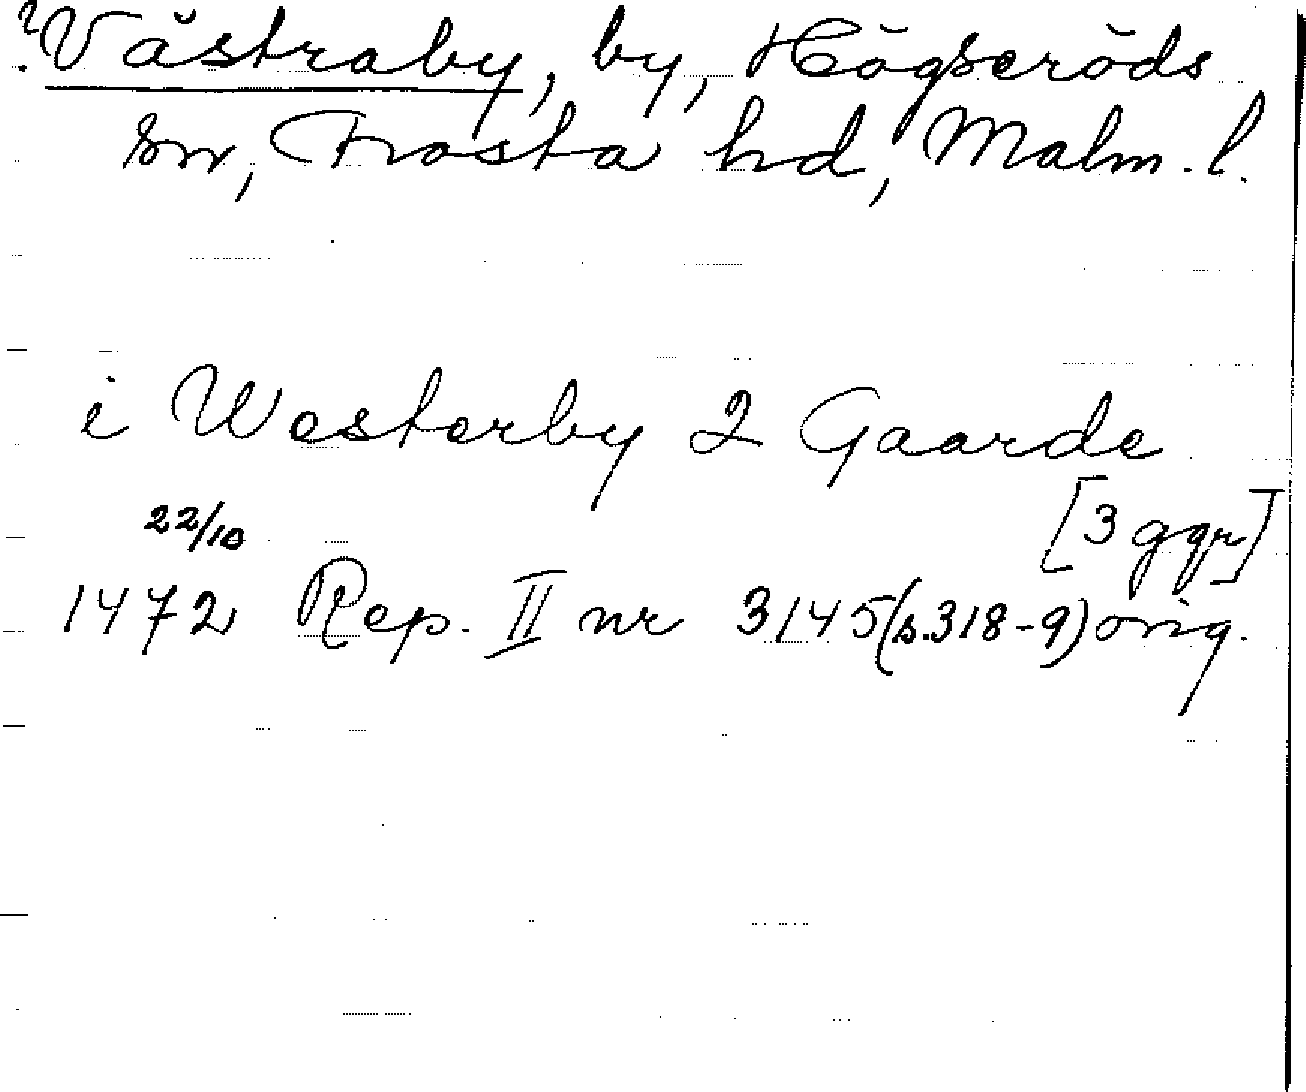 ?Västraby, by, Högseröds
sn, Frosta hd, Malm. l.
i Westerby 2 Gaarde
[3 ggr]
22/10
1472 Rep. II nr 3145 (s. 318-9) orig.